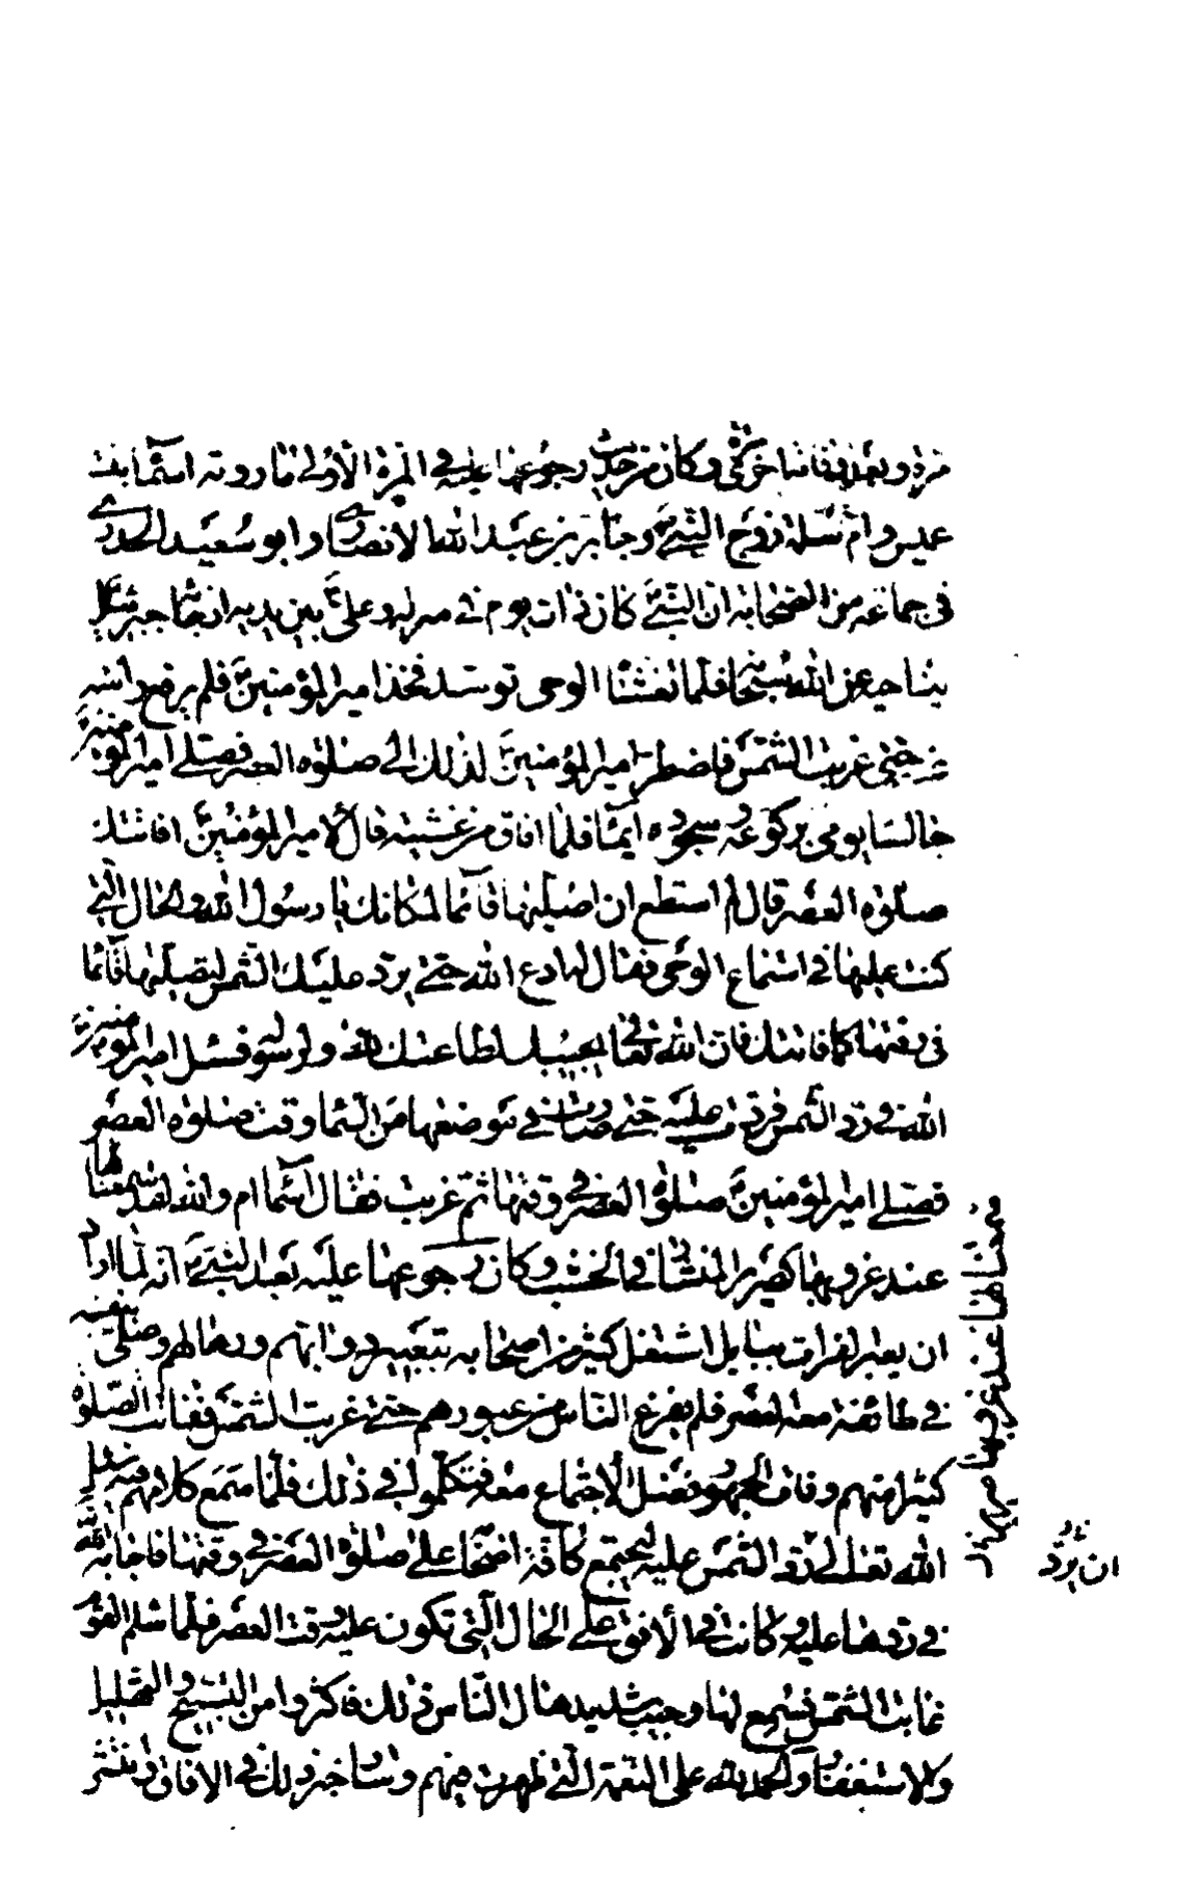 مرة وبعد وفاته اخرى وكان من حديث رجوعها عليه في المرة الاولى ما روته اسماء بنت
عميس وام سلمة زوج النبي وجابر بن عبد الله الانصاري وابو سعيد الخدري
في جماعة من الصحابة ان النبي كان ذات يوم في منزله وعلي بين يديه اذ جاءه جبرئيل
يناجيه عن الله سبحانه فلما تغشاه الوحى توسد فخذ امير المؤمنين فلم يرفع راسه
عنه حتى غربت الشمس فاضطر امير المؤمنين لذلك الى صلوة العصر فصلى امير المؤمنين
جالسا يومى بركوعه وسجوده ايماء فلما افاق من غشيته قال لامير المؤمنين افاتتك
صلوة العصر قال لم استطع ان اصليها قائما لمكانك يا رسول الله والحال التي
كنت عليها في استماع الوحى فقال له ادع الله حتى يرد عليك الشمس لتصليها قائما
في وقتها كما فاتتك فان الله تعالى يجيبك لطاعتك لله ولرسوله فسئل امير المؤمنين
الله في رد الشمس فردت عليه حتى صارت في موضعها من السماء وقت صلوة العصر
فصلى امير المؤمنين صلوة العصر في وقتها ثم غربت فقال اسماء ام والله لقد سمعنا لها
عند غروبها كصرير المنشار في الخشب وكان رجوعها عليه بعد النبي انه لما اراد
ان يعبر الفرات ببابل اشتغل كثير من اصحابه بتعبير دوابهم ورحالهم وصلى بنفسه
في طائفة معه العصر فلم يفرغ الناس من عبورهم حتى غربت الشمس ففاتت الصلوة
كثيرا منهم وفات الجمهور فضل الاجتماع معه فتكلموا في ذلك فلما سمع كلامهم فيه سئل
الله تعالى رد الشمس عليه ليجتمع كافة اصحابه على صلوة العصر في وقتها فاجابه الله
في ردها عليه وكانت في الافق على الحال التي تكون عليه وقت العصر فلما سلم القوم
غابت الشمس فسمع لها وجيب شديد هال الناس ذلك فاكثروا من التسبيح والتهليل
والاستغفار والحمد لله على النعمة التي ظهرت فيهم وسار خبر ذلك في الافاق وانتشر
سمعناها عند غروبها
ان يرد